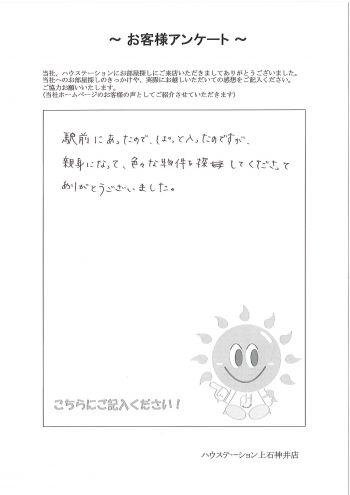 ～ お客様アンケート ～
当社、ハウステーションにお部屋探しにご来店いただきましてありがとうございました。
当社へのお部屋探しのきっかけや、実際にお越しいただいての感想をご記入ください。
ご協力お願いいたします。
(当社ホームページのお客様の声としてご紹介させていただきます)
駅前にあったので、ぱっと入ったのですが、
親身になって、色々な物件を探してくださって
ありがとうございました。
こちらにご記入ください！
ハウステーション上石神井店